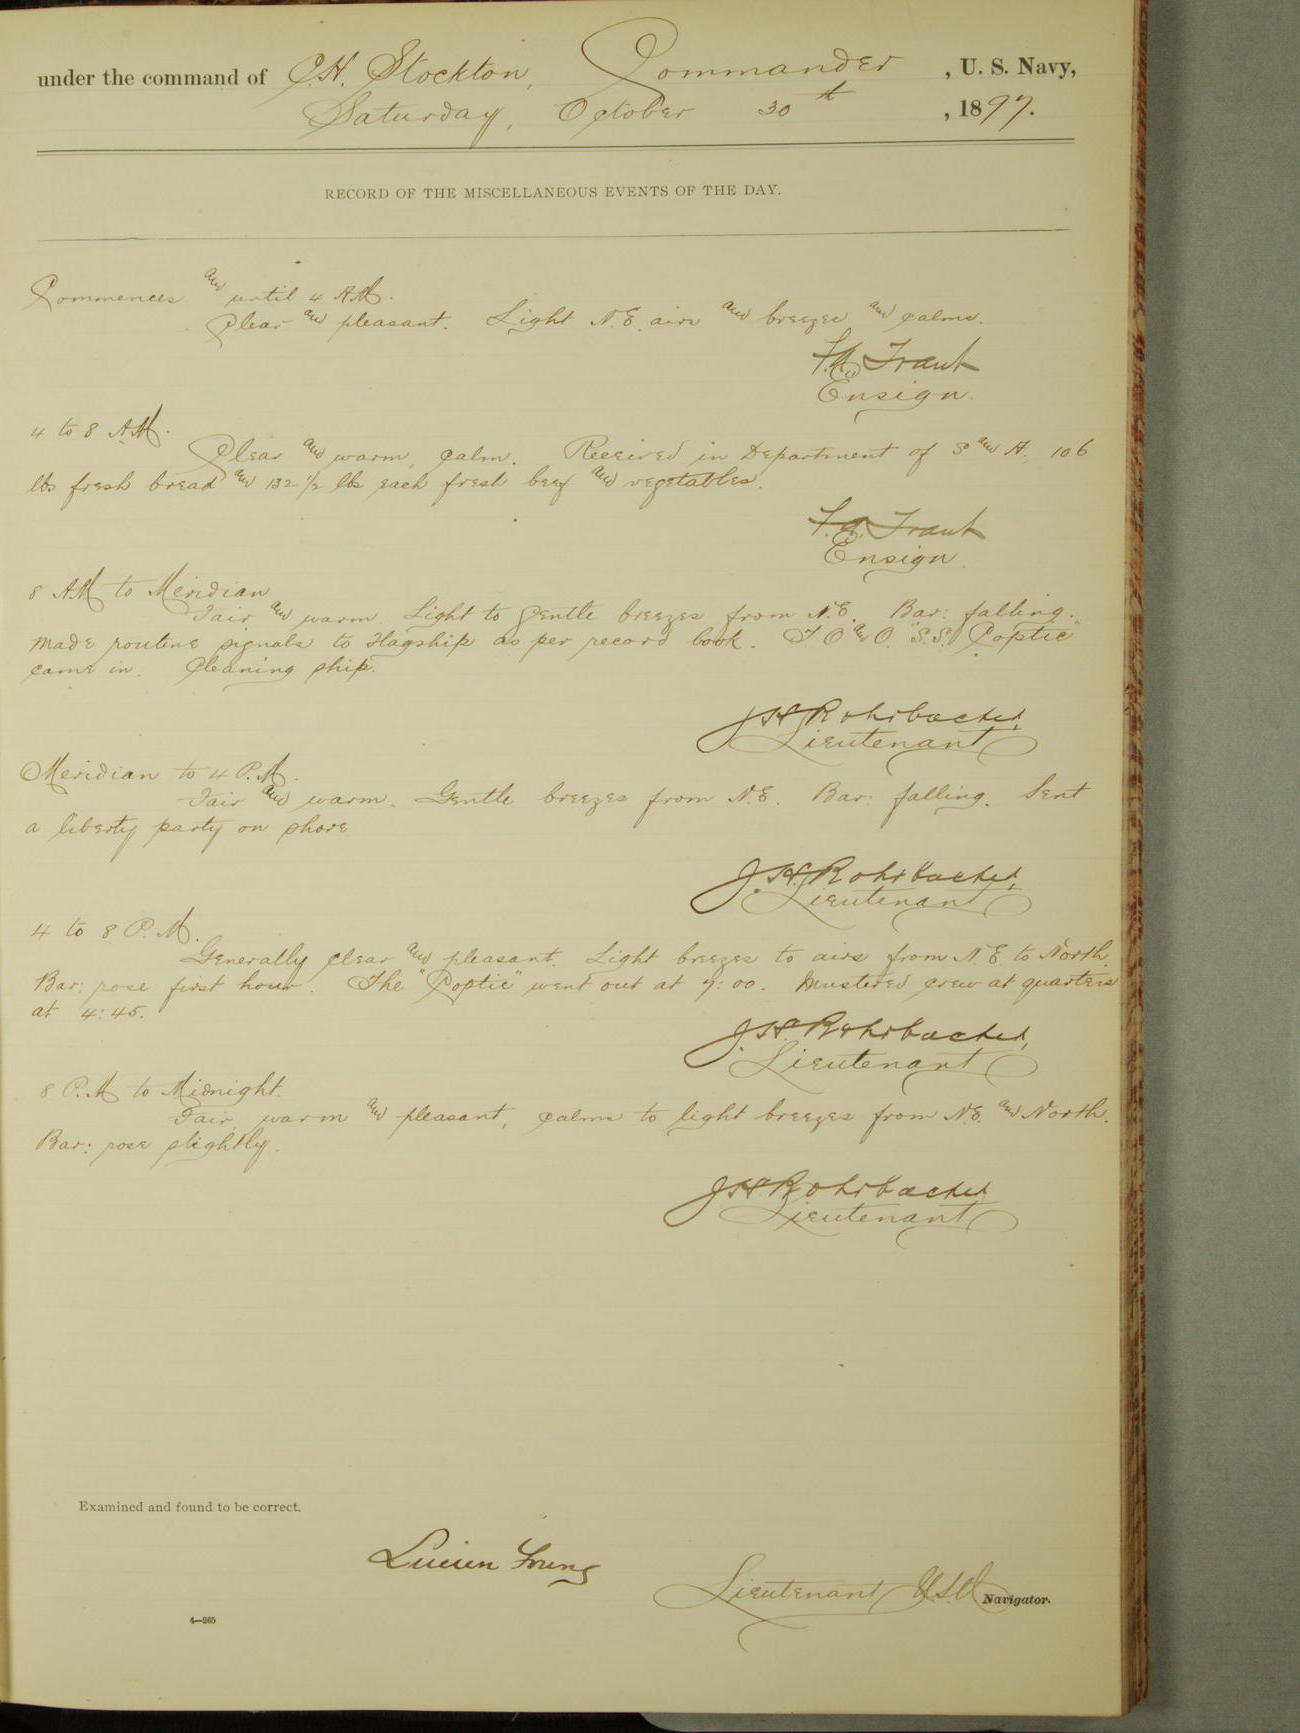 under the command of C.H. Stockton, Commander, U. S. Navy,
Saturday, October 30th, 1897.
RECORD OF THE MISCELLANEOUS EVENTS OF THE DAY.
Commences and until 4 A.M.
Clear and pleasant. Light N.E. airs and breezes and calms.
F.A. Traut
Ensign.
4 to 8 A.M.
Clear and warm, calm. Received in Department of S and A. 106
lbs fresh bread and 132 1/2 lbs each fresh beef and vegetables.
F.A. Traut
Ensign.
8 AM to Meridian
Fair and warm. Light to gentle breezes from N.E. Bar: falling.
Made routine signals to Flagship as per record book. T.O. & O. "S.S. Coptic"
came in. Cleaning ship.
J.H. Rohrbacher,
Lieutenant
Meridian to 4 P.M.
Fair and warm. Gentle breezes from N.E. Bar: falling. Sent
a liberty party on shore
J.H. Rohrbacher,
Lieutenant
4 to 8 P.M.
Generally clear and pleasant. Light breezes to airs from N.E. to North.
Bar: rose first hour. The "Coptic" went out at 7:00. Mustered crew at quarters
at 4:45.
J.H. Rohrbacher,
Lieutenant
8 P.M to Midnight.
Fair, warm and pleasant, calm to light breezes from N.E. and North.
Bar: rose slightly.
J.H. Rohrbacher
Lieutenant
Examined and found to be correct.
Lucien Young
Lieutenant U.S.N. Navigator.
4—265